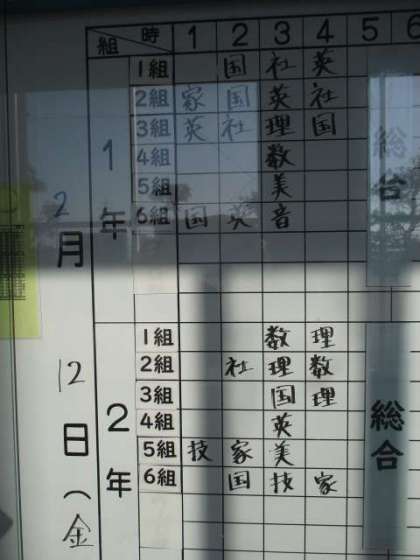 組 時 1 2 3 4 5 6
2月12日(金
1年
1組 国 社 英
2組 家 国 英 社
3組 英 社 理 国
4組 数
5組 美
6組 国 英 音
総合
2年
1組 数 理
2組 社 理 数
3組 国 理
4組 英
5組 技 家 美
6組 国 技 家
総合